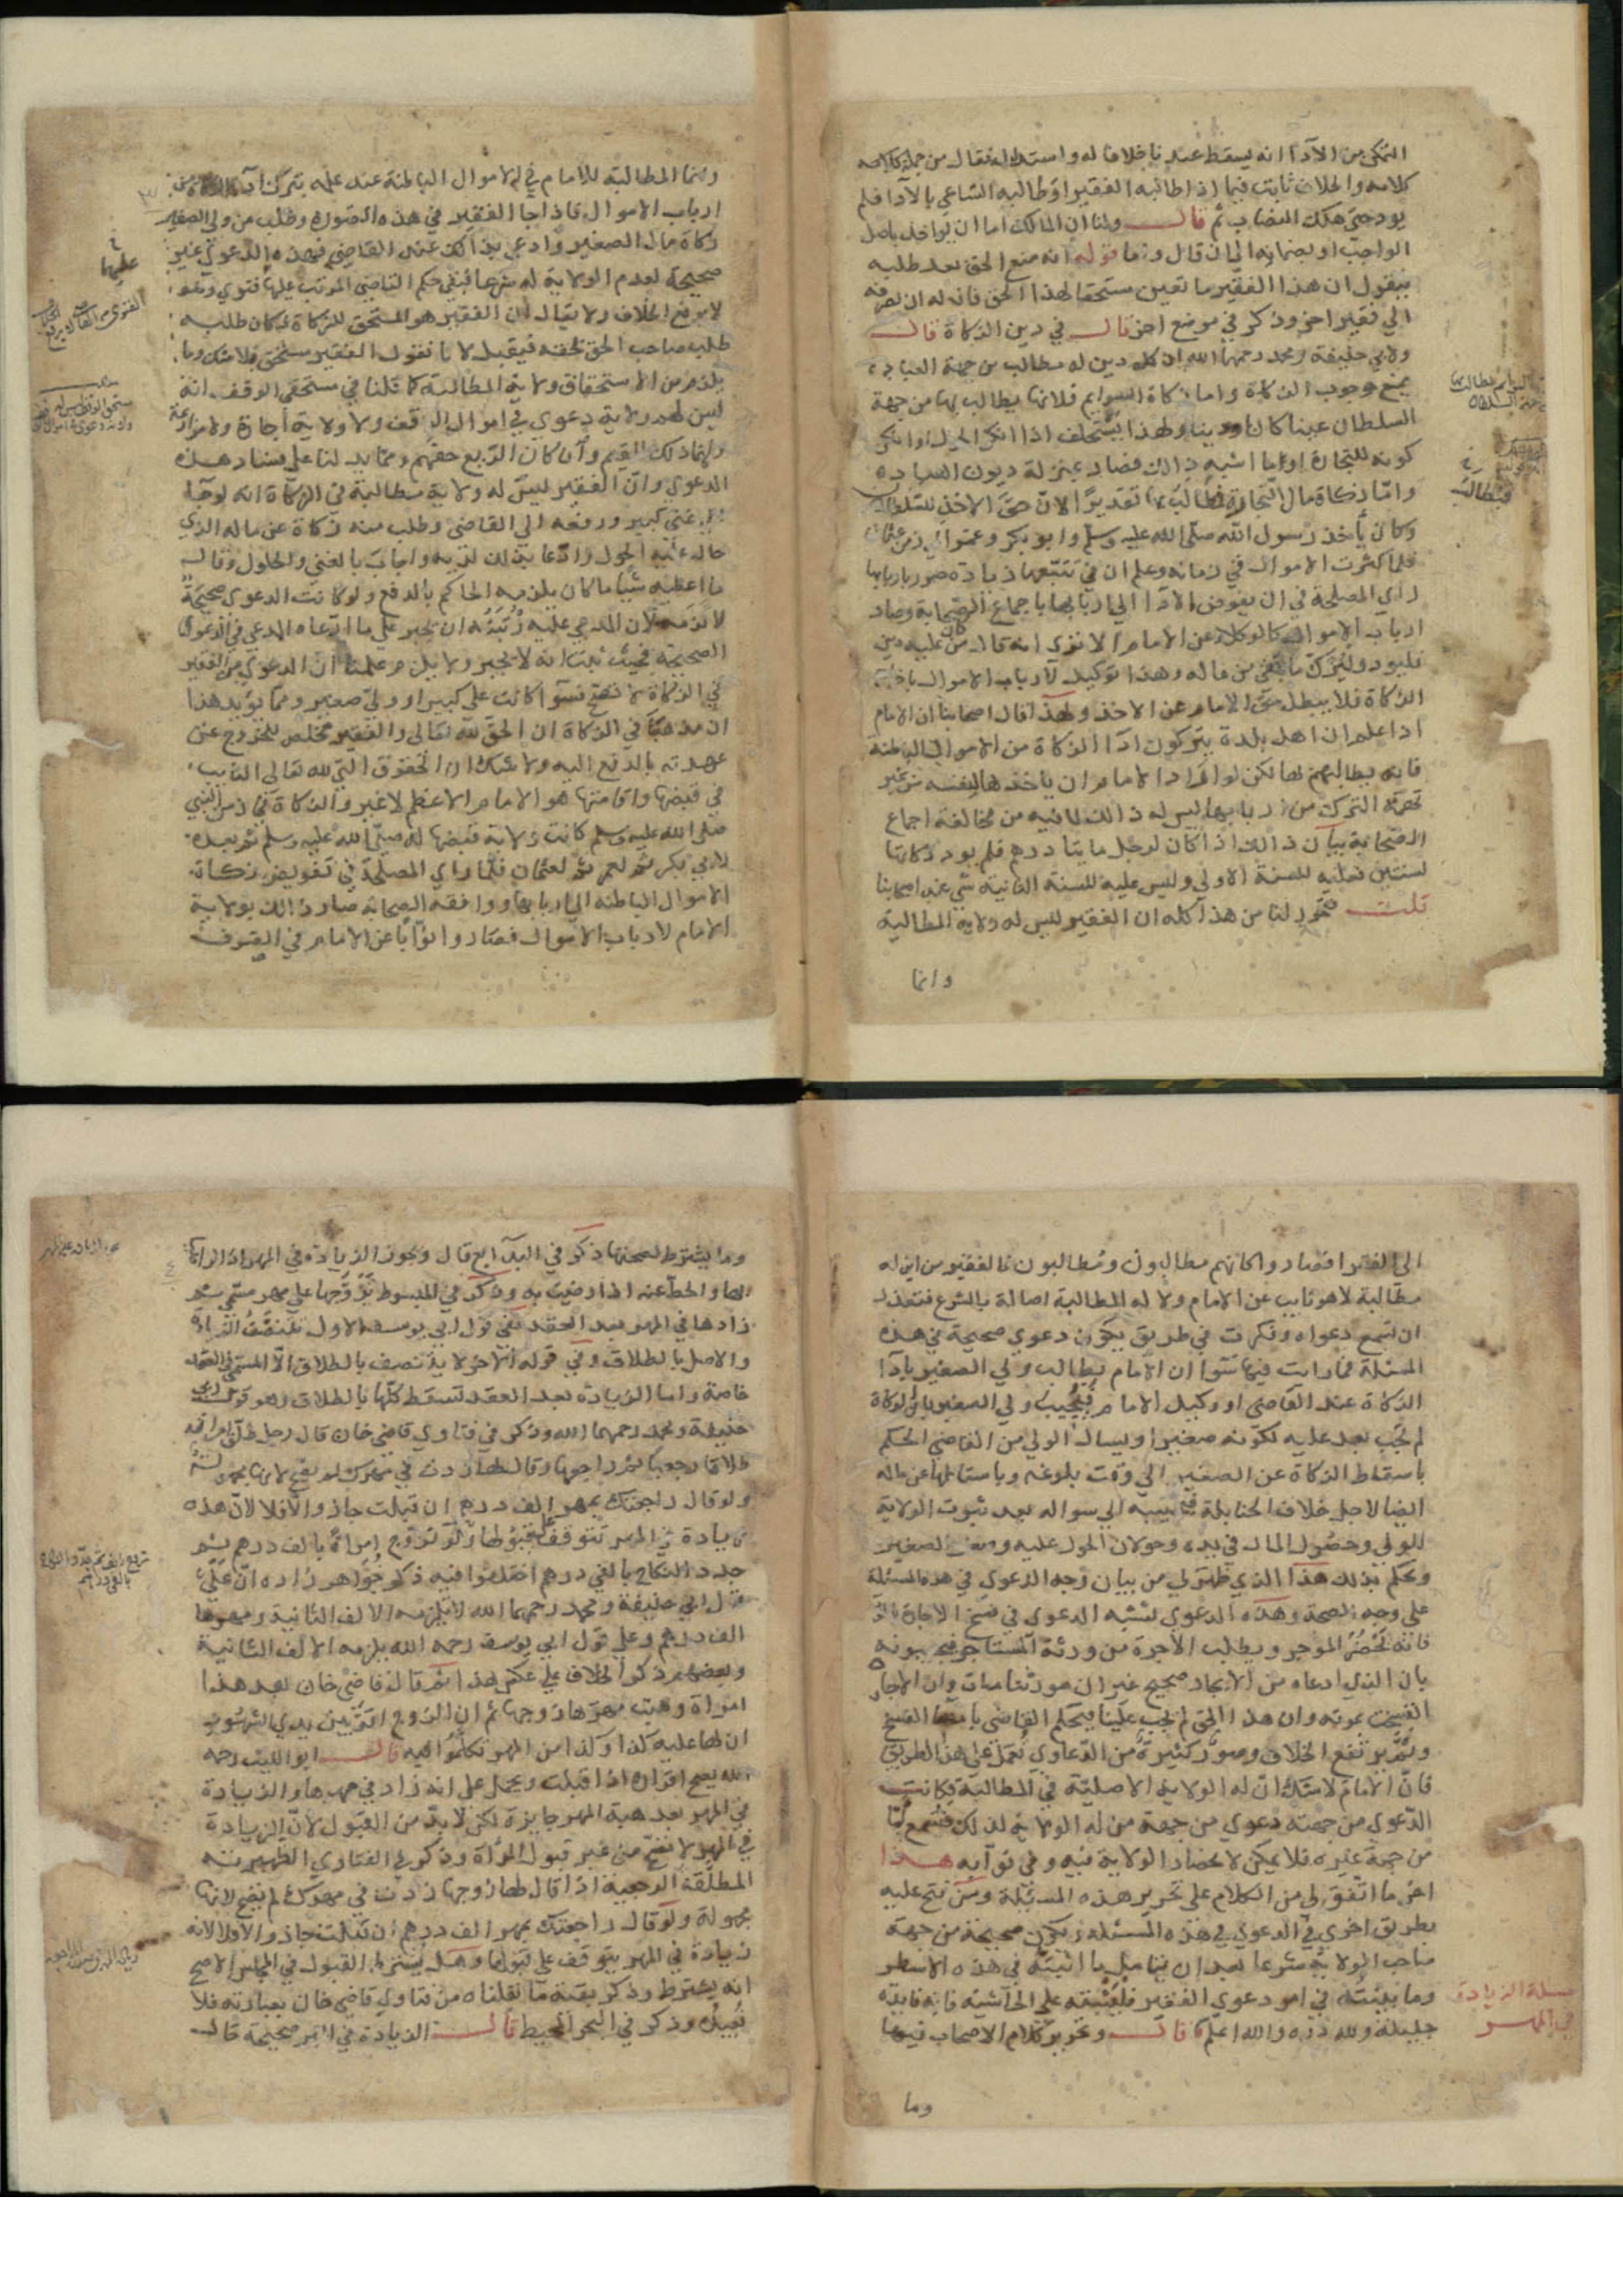 التمكن من الادآ انه يسقط عندنا خلافا له واستدل له فقال من جملة
كلامه والخلاف ثابت فيما اذا طالبه الفقير او طالبه الساعي بالادا فلم
يود حتى هلك النصاب ثم قال ولنا ان المالك اما ان يواخذ باصل
الواجب او بضمانه الى ان قال وما قوله انه منع الحق بعد طلبه
فنقول ان هذا الفقير ما تعين مستحقا لهذا الحق فانه له ان يصرفه
الي فقير اخر وذكر في موضع اخر قال في دين الزكاة قال
ولابي حنيفة ومحمد رحمهما الله ان كل دين له مطالب من جهة العباد
يمنع وجوب الزكاة واما زكاة السوايم فلانها يطالب بها من جهة
السلطان عينا كان او دينا ولهذا يستحلف اذا انكر الحول او انكر
كونه للتجارة او ما اشبه ذالك فصار بمنزلة ديون العباد
وامّا زكاة مال التجارة فمطالب بها تقديرًا لانّ حق الاخذ للسلطان
وكان يأخذ رسول الله صلّى الله عليه وسلم وابو بكر وعمر الي زمن عثمان
فلما كثرت الاموال في زمانه وعلم ان في تتبّعها زيادة ضرر باربابها
راي المصلحة في ان يفوض الادآ الي اربابها باجماع الصّحابة وصار
ارباب الاموال كالوكلاء عن الامام الا تري انه قال من كان عليه دين
فليود وليزك ما بقي من ماله وهذا توكيل لارباب الاموال باخراج
الزكاة فلا يبطل حق الامام عن الاخذ ولهذا قال اصحابنا ان الامام
اذا علم ان اهل بلدة يتركون ادآ الزكاة من الاموال الباطنة
فانه يطالبهم لها لكن لو اراد الامام ان ياخذها لنفسه من غير
تهمة الترك من اربابها ليس له ذالك لما فيه من مخالفة اجماع
الصّحابة بيان ذالك اذا كان لرجل مايتا درهم فلم يود زكاتها
لسنتين فعليه للسنة الاولي وليس عليه للسنة الثانية شي عند اصحابنا
قلت فتحرر لنا من هذا كله ان الفقير ليس له ولاية المطالبة
وانما
فيطالب
وانما المطالبة للامام في الاموال الباطنة عند علمه بترك ادآ الزكاة من
ارباب الاموال فاذا جا الفقير في هذه الصورة وطلب من ولي الصغير
زكاة مال الصغير وادعي بذالك عند القاضي فهذه الدعوي غير
صحيحة لعدم الولاية له شرعا فبقي حكم القاضي المرتب عليها فتوي وهو
لا يرفع الخلاف ولا يقال ان الفقير هو المستحق للزكاة فكان طلبه
طلب صاحب الحق لحقه فيقبل لانا نقول الفقير مستحق بلا شك وما
يلزم من الاستحقاق ولاية المطالبة كما قلنا في مستحقي الوقف انه
ليس لهم ولاية دعوي في اموال الوقف ولا ولاية اجارة ولا مزارعة
وانما ذلك للقيم وان كان الرّيع حقهم ومما يدلنا على فساد هذه
الدعوي وانّ الفقير ليس له ولاية مطالبة في الزكاة انه لو جآ
الى غني كبير ورفعه الي القاضي وطلب منه زكاة عن ماله الذي
حال عليه الحول وادّعا بذالك لديه واجاب بالغني والحلول وقال
ما اعطيه شيأ ما كان يلزمه الحاكم بالدفع ولو كانت الدعوي صحيحة
لالزمه لان المدعي عليه رُتْبَتُه ان يجبر علي ما ادّعاه المدعي في الدعوي
الصحيحة فحيث ثبت انه لا يجبر ولا يلزم علمنا ان الدعوي من الفقير
في الزكاة لا تصح سوآ كانت على كبير او وليّ صغير ومما يؤيد هذا
ان مذهبنا في الزكاة ان الحق لله تعالى والفقير مخلّص للخروج عن
عهدته بالدفع اليه ولا شك ان الحقوق التي لله تعالى النايب
في قبضها واقامتها هو الامام الاعظم لا غير والزكاة في زمن النبي
صلى الله عليه وسلم كانت ولاية قبضها له صلّى الله عليه وسلم ثم بعده
لابي بكر ثم لعمر ثم لعثمان فلمّا راي المصلحة في تفويض زكاة
الاموال الباطنة الي اربابها ووافقه الصحابة صار ذالك تولاية
الامام لارباب الاموال فصاروا نوّابًا عن الامام في الصرف
عليها
الى الفقرا فصاروا كانهم مطالبون ومُطالبون فالفقير من اين له
مطالبة لا هو نايب عن الامام ولا له المطالبة اصالة بالشرع فتعذر
ان تسمع دعواه وفكرت في طريق يكون دعوي صحيحة في هذه
المسئلة فما رايت فيها سَوا ان الامام يطالب ولي الصغير بادآ
الزكاة عند القاضي او وكيل الامام فيُجيب ولي الصغير بانّ الزكاة
لم تجب بعد عليه لكونه صغيرا ويسال الولي من القاضي الحكم
باسقاط الزكاة عن الصغير الي وقت بلوغه وباسقاطها عن ماله
ايضا لاجل خلاف الحنابلة فيجيبه الي سواله بعد ثبوت الولاية
للولي وحصول المال في يده وحولان الحول عليه وصغر الصغير
ويحكم بذلك هذا الذي ظهر لي من بيان وجه الدعوي في هذه المسئلة
على وجه الصحة وهذه الدعوي تشبه الدعوي في فسخ الاجارة
فانه يَحْضُرُ الموجر ويطلب الاجرة من ورثة المستاجر فيجيبونه
بان الذي ادعاه من الايجار صحيح غير ان مورّثنا مات وان الاجارة
انفسخت بموته وان هذا الحق لم يجب علينا فيحكم القاضي بامضا الفسخ
وتُمَّ يرتفع الخلاف وصورٌ كثيرة من الدّعاوي تُعمل على هذا الطريق
فانّ الامام لا شك انّ له الولاية الاصليّة في المطالبة فكانت
الدّعوي من جهته دعوي من جهة من له الولاية لذلك فتُسمع امّا
من جهة غيره فلا يمكن لانحصار الولاية فيه وفي نوّابه هذا
اخر ما اتّفق لي من الكلام على تحرير هذه المسئلة ومَن فتح عليه
بطريق اخري في الدعوي في هذه المسئلة وتكون صحيحة من جهة
صاحب الولاية شرعا بعد ان يتامّل ما اثبتّه في هذه الاسطر
وما بيّنتُه في امر دعوي الفقير فليُثبته على الحاشية فانه فايدة
جليلة ولله درّه والله اعلم قال وتحرير كلام الاصحاب فيها
مسئلة الزيادة
في المهر
وما
وما يشترط لصحتها ذكر في البدآيع قال وتجوز الزيادة في المهر اذا تراضيا
بها والحطّ عنه اذا رضيت به وذكر في المبسوط تزوّجها على مهر مسمّى ثم
زادها في المهر بعد العقد ففي قول ابي يوسف الاول تتنصّف الزيادة
والاصل بالطلاق وفي قوله الآخر لا يتنصف بالطلاق الّا المسمّى في العقد
خاصة واما الزيادة بعد العقد تسقط كلّها بالطلاق وهو قول ابي
حنيفة ومحمد رحمهما الله وذكر في فتاوي قاضي خان قال رجل طلّق امراته
طلاقا رجعيا ثم راجعها وقال لها زدت في مهرك لم يصح لانها مجهولة
ولو قال راجعتك بمهر الف درهم ان قبلت جاز والّا فلا لانّ هذه
زيادة في المهر تتوقف على قبولها ولو تزوّج امرأة بالف درهم ثم
جدد النكاح بالفي درهم اختلفوا فيه ذكر خُوَاهر زاده انّ علىٰ
قول ابي حنيفة ومحمد رحمهما الله لا يلزمه الالف الثانية ومهرها
الف درهم وعلى قول ابي يوسف رحمه الله يلزمه الالف الثانية
وبعضهم ذكر الخلاف علي عكس هذا ثم قال قاضي خان بعد هذا
امراة وهبت مهرها من زوجها ثم ان الزوج اقرّ بين يدي الشهود
ان لها عليه كذا وكذا من المهر تكلّموا فيه قال ابو الليث رحمه
الله يصح اقراره اذا قبلت ويحمل على انه زاد في مهرها والزيادة
في المهر بعد هبة المهر جايزة لكن لا بدّ من القبول لانّ الزيادة
في المهر لا تصحّ من غير قبول المرأة وذكر في الفتاوي الظهيرية
المطلّقة الرجعية اذا قال لها زوجها زدت في مهرك لم يصح لانها
مجهولة ولو قال راجعتك بمهر الف درهم ان قبلت جاز والا فلا لانه
زيادة في المهر يتوقف على قبولها وهل يشترط القبول في المجلس الاصح
انه يشترط وذكر بقية ما نقلناه من فتاوي قاضي خان بعبارته فلا
نُعِيدُه وذكر في البحر المحيط قال الزيادة في المهر صحيحة قال